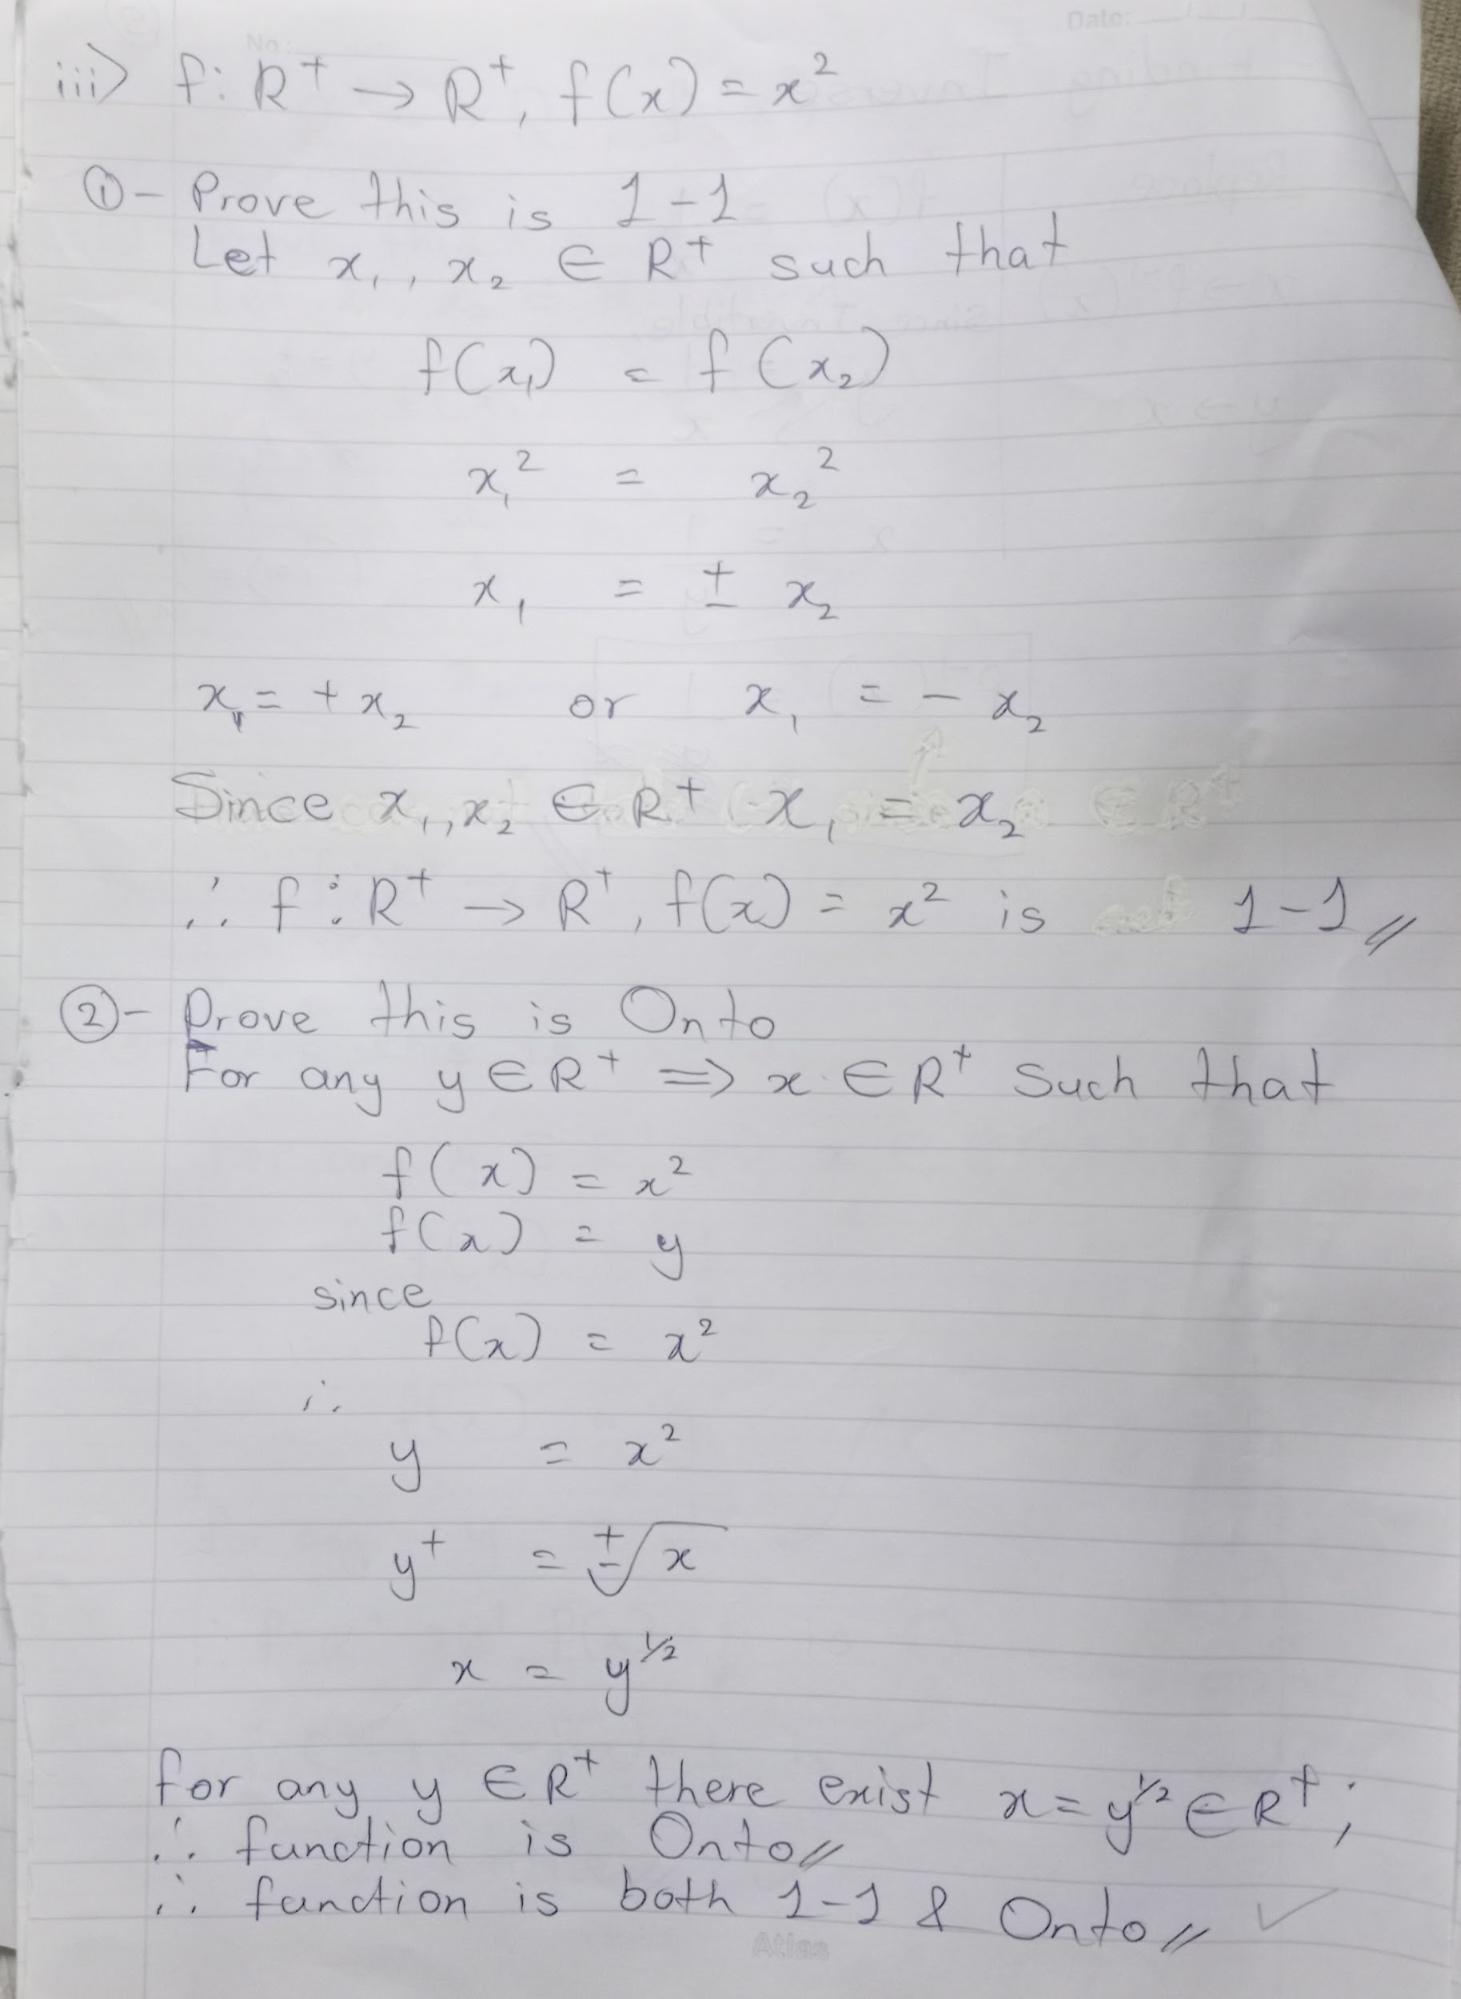 No:
Date:
iii) f: R⁺ → R⁺, f(x) = x²
①- Prove this is 1-1
Let x₁, x₂ ∈ R⁺ such that
f(x₁) = f(x₂)
x₁² = x₂²
x₁ = ± x₂
x₁ = + x₂ or x₁ = - x₂
Since x₁, x₂ ∈ R⁺ x₁ = x₂
∴ f: R⁺ → R⁺, f(x) = x² is 1-1 //
②- Prove this is Onto
For any y ∈ R⁺ ⇒ x ∈ R⁺ such that
f(x) = x²
f(x) = y
since
f(x) = x²
∴
y = x²
y⁺ = ±√x
x = y^½
for any y ∈ R⁺ there exist x = y^½ ∈ R⁺;
∴ function is Onto //
∴ function is both 1-1 & Onto // ✓
Atlas